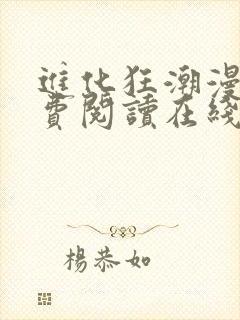 進化狂潮漫
費閱讀在綫
楊恭如